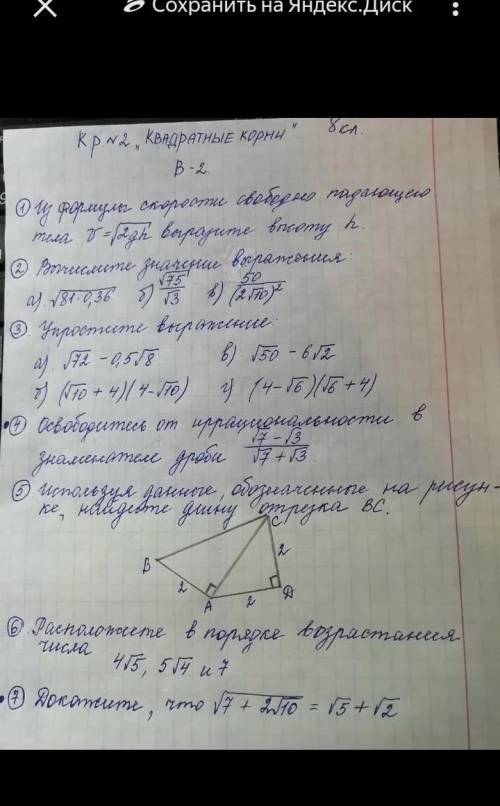 Сохранить на Яндекс.Диск
К.р. №2 „Квадратные корни" 8 кл.
В-2.
① Из формулы скорости свободно падающего
тела v=√2gh выразите высоту h.
② Вычислите значение выражения:
а) √81·0,36 б) √75/√3 в) 50/(2√10)²
③ Упростите выражение:
а) √72 - 0,5√8 в) √50 - 6√2
б) (√10 + 4)(4 - √10) г) (4 - √6)(√6 + 4)
④ Освободитесь от иррациональности в
знаменателе дроби (√7 - √3)/(√7 + √3)
⑤ Используя данные, обозначенные на рисун-
ке, найдите длину отрезка BC.
C
B
2
2
A
2
D
⑥ Расположите в порядке возрастания
числа
4√5, 5√4 и 7
⑦ Докажите, что √7 + 2√10 = √5 + √2